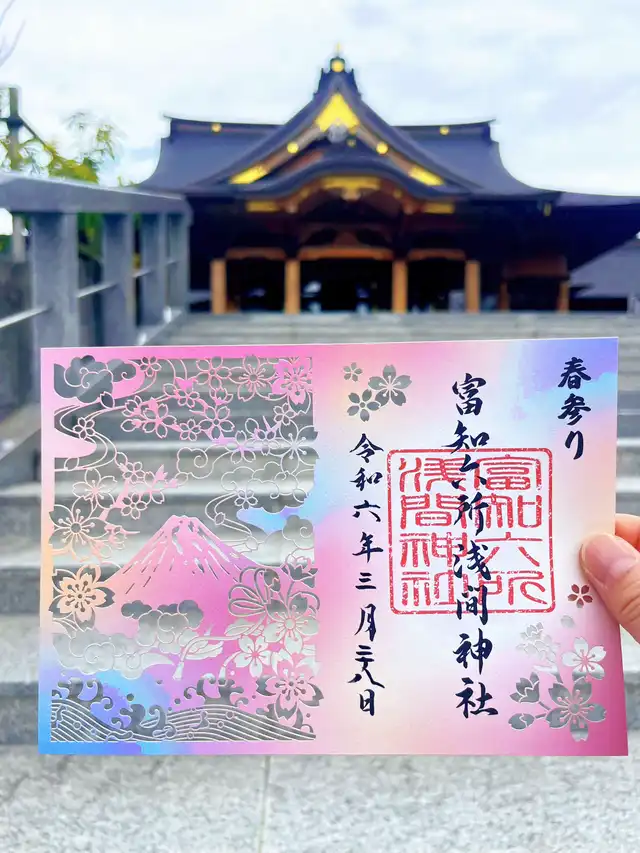 春参り
富知六所浅間神社
富知六所
浅間神社
令和六年三月二十八日